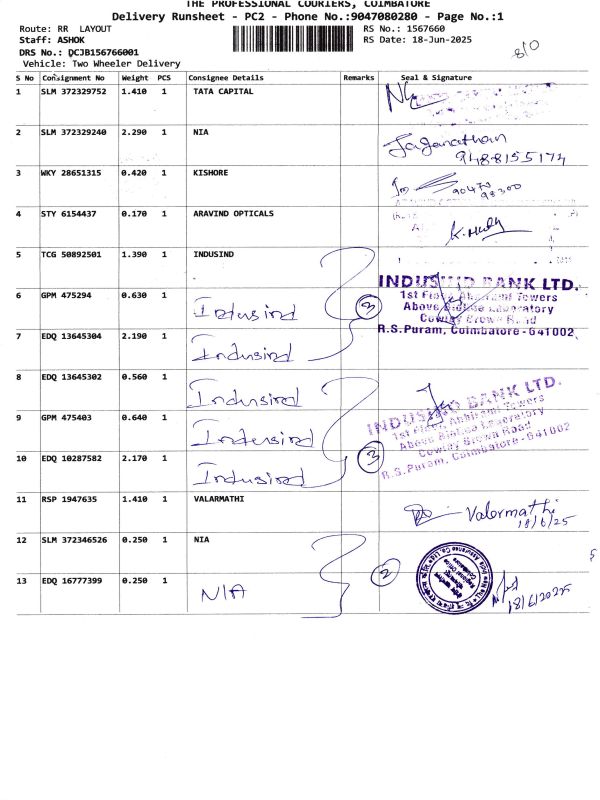 THE PROFESSIONAL COURIERS, COIMBATORE
Delivery Runsheet - PC2 - Phone No.:9047080280 - Page No.:1
Route: RR LAYOUT
Staff: ASHOK
DRS No.: DCJB156766001
Vehicle: Two Wheeler Delivery
RS No.: 1567660
RS Date: 18-Jun-2025
8/0
S No Consignment No Weight PCS Consignee Details Remarks Seal & Signature
1 SLM 372329752 1.410 1 TATA CAPITAL
2 SLM 372329240 2.290 1 NIA Jaganathan
9488155174
3 WKY 28651315 0.420 1 KISHORE 90470
98300
4 STY 6154437 0.170 1 ARAVIND OPTICALS
5 TCG 50892501 1.390 1 INDUSIND
6 GPM 475294 0.630 1 Indusind 3
INDUSIND BANK LTD.
1st Floor, Abhirami Towers
Above Biolabe Laboratory
Cowley Brown Road
R.S.Puram, Coimbatore-641002
7 EDQ 13645304 2.190 1 Indusind
8 EDQ 13645302 0.560 1 Indusind
9 GPM 475403 0.640 1 Indusind
INDUSIND BANK LTD.
1st Floor, Abhirami Towers
Above Biolabe Laboratory
Cowley Brown Road
R.S.Puram, Coimbatore-641002
10 EDQ 10287582 2.170 1 Indusind 3
11 RSP 1947635 1.410 1 VALARMATHI Valarmathi
18/6/25
12 SLM 372346526 0.250 1 NIA 2
13 EDQ 16777399 0.250 1 NIA 18/6/2025